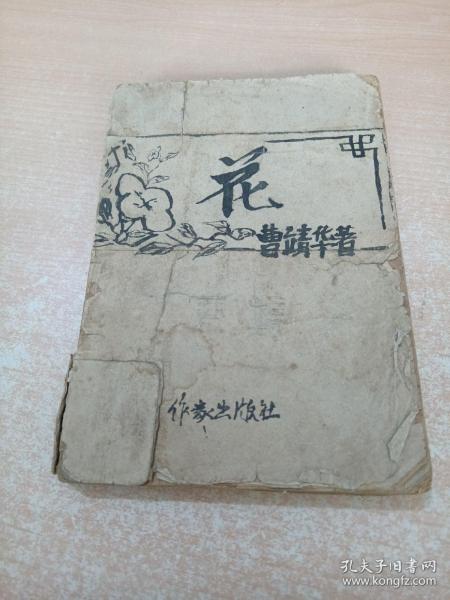 花
曹靖华著
作家出版社
孔夫子旧书网
www.kongfz.com